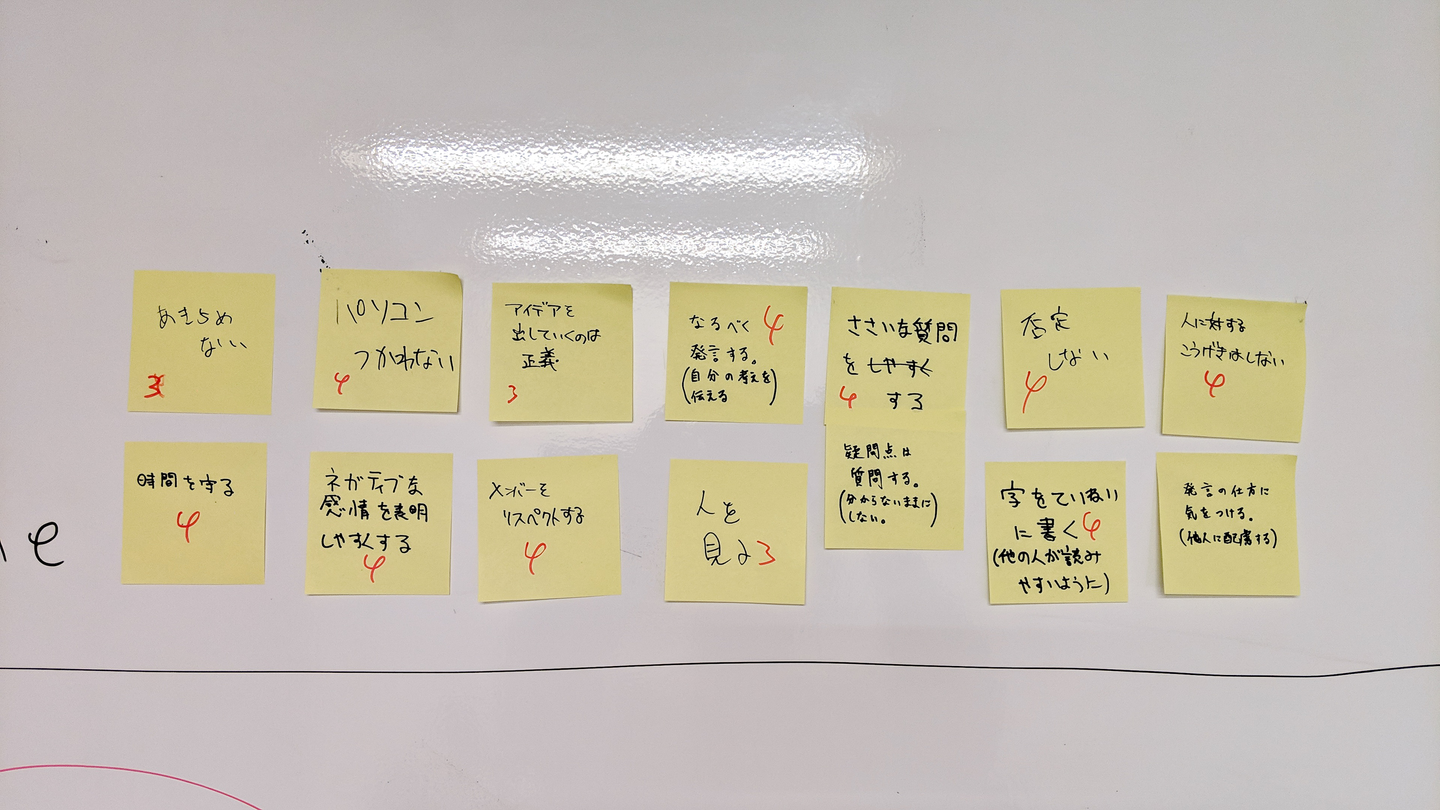 あきらめ
ない
3
パソコン
つかわない
4
アイデアを
出していくのは
正義
3
なるべく 4
発言する。
(自分の考えを)
伝える
ささいな質問
を しやすく
4 する
否定
しない
4
人に対する
こうげきはしない
4
時間を守る
4
ネガティブな
感情を表明
しやすくする
4
メンバーを
リスペクトする
4
人を
見よ 3
疑問点は
質問する。
(分からないままに)
しない。
字をていねい
に書く 4
(他の人が読み
やすいように)
発言の仕方に
気をつける。
(他人に配慮する)
e